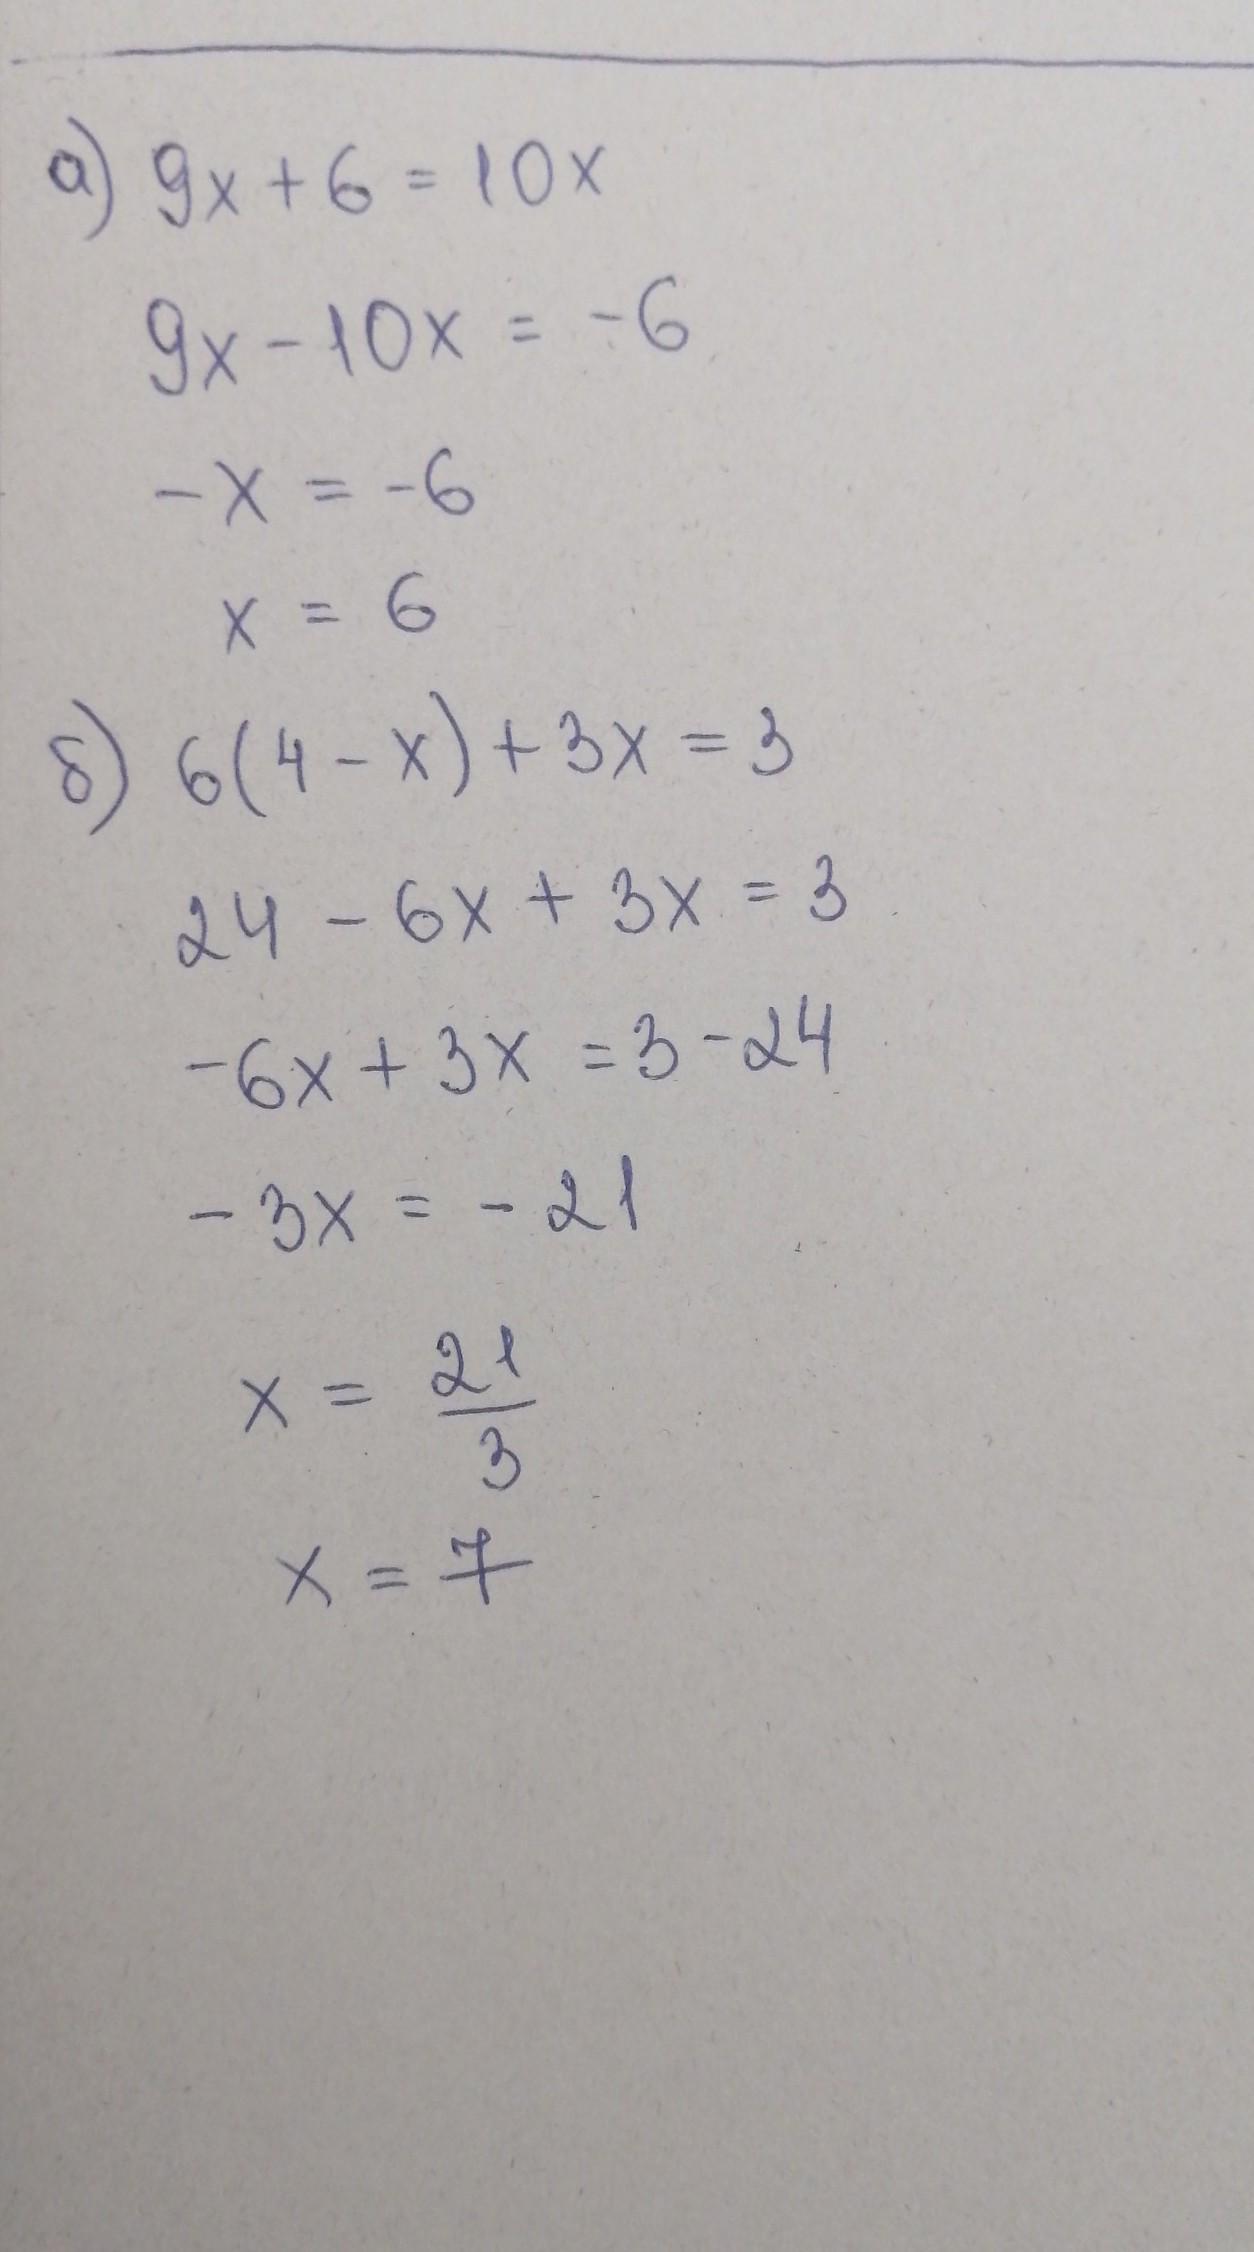 а) 9x + 6 = 10x
9x - 10x = -6
- x = -6
x = 6
б) 6(4 - x) + 3x = 3
24 - 6x + 3x = 3
-6x + 3x = 3 - 24
- 3x = - 21
x = 21/3
x = 7